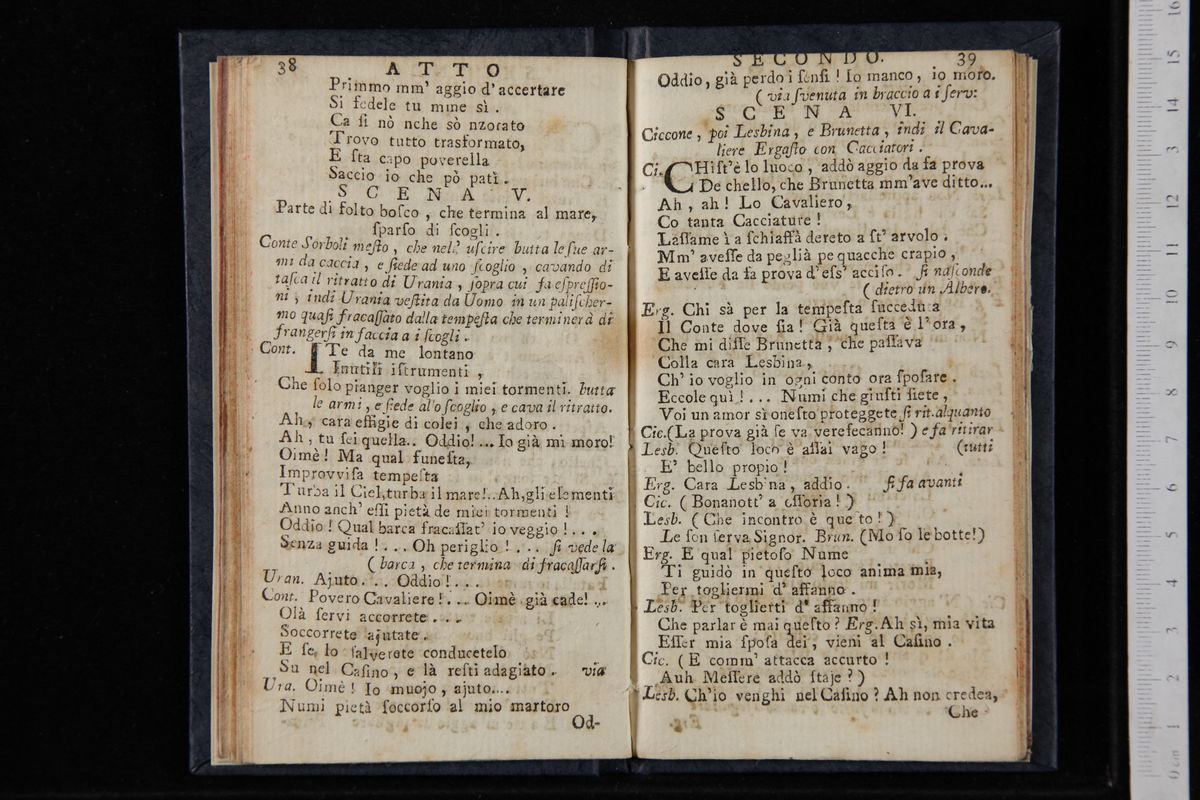 38 ATTO
Primmo mm' aggio d'accertare
Si fedele tu mme sì .
Ca ſi nò nche sò nzorato
Trovo tutto trasformato,
E ſta capo poverella
Saccio io che pò patì .
SCENA V.
Parte di folto boſco , che termina al mare,
ſparſo di ſcogli .
Conte Sorboli meſto , che nell' uſcire butta le ſue ar-
mi da caccia , e ſiede ad uno ſcoglio , cavando di
taſca il ritratto di Urania , ſopra cui fa eſpreſſio-
ni ; indi Urania veſtita da Uomo in un paliſcher-
mo quaſi fracaſſato dalla tempeſta che terminerà di
frangerſi in faccia a i ſcogli .
Cont. ITe da me lontano
Inutili iſtrumenti ,
Che ſolo pianger voglio i miei tormenti. butta
le armi , e ſiede al'o ſcoglio , e cava il ritratto.
Ah , cara effigie di colei , che adoro .
Ah , tu ſei quella.. Oddio!... Io già mi moro!
Oimè ! Ma qual funeſta,
Improvviſa tempeſta
Turba il Ciel,turba il mare!..Ah,gli elementi
Anno anch' eſſi pietà de miei tormenti !
Oddio ! Qual barca fracaſſat' io veggio ! . . .
Senza guida ! . . . Oh periglio ! . . . ſi vede la
( barca , che termina di fracaſſarſi .
Uran. Ajuto . . . Oddio ! . . .
Cont. Povero Cavaliere ! . . . Oimè già cade! ...
Olà ſervi accorrete . . .
Soccorrete ajutate .
E ſe lo ſalverete conducetelo
Su nel Caſino , e là reſti adagiato . via
Ura. Oimè ! Io muojo , ajuto....
Numi pietà ſoccorſo al mio martoro
Od-
SECONDO. 39
Oddio, già perdo i ſenſi ! Io manco , io moro.
( via ſvenuta in braccio a i ſerv:
SCENA VI.
Ciccone , poi Lesbina , e Brunetta , indi il Cava-
liere Ergaſto con Cacciatori .
Ci. CHiſt'è lo luoco , addò aggio da fa prova
De chello, che Brunetta mm'ave ditto...
Ah , ah ! Lo Cavaliero,
Co tanta Cacciature !
Laſſame ì a ſchiaffà dereto a ſt' arvolo .
Mm' aveſſe da peglià pe quacche crapio ,
E aveſſe da fa prova d'eſs' acciſo . ſi naſconde
( dietro un Albero.
Erg. Chi sà per la tempeſta ſucceduta
Il Conte dove ſia ! Già queſta è l'ora ,
Che mi diſſe Brunetta , che paſſava
Colla cara Lesbina,
Ch' io voglio in ogni conto ora ſpoſare .
Eccole quì ! . . . Numi che giuſti ſiete ,
Voi un amor sì oneſto proteggete ſi rit.alquanto
Cic.(La prova già ſe va vereſecanno! ) e fa ritirar
Lesb. Queſto loco è aſſai vago ! (tutti
E' bello propio !
Erg. Cara Lesbina , addio . ſi fa avanti
Cic. ( Bonanott' a oſſoria ! )
Lesb. ( Che incontro è queſto ! )
Le ſon ſerva Signor. Brun. (Mo ſo le botte!)
Erg. E qual pietoſo Nume
Ti guidò in queſto loco anima mia,
Per togliermi d' affanno .
Lesb. Per toglierti d' affanno !
Che parlar è mai queſto ? Erg. Ah sì, mia vita
Eſſer mia ſpoſa dei , vieni al Caſino .
Cic. ( E comm' attacca accurto !
Auh Meſſere addò ſtaje ? )
Lesb. Ch'io venghi nel Caſino ? Ah non credea,
Che